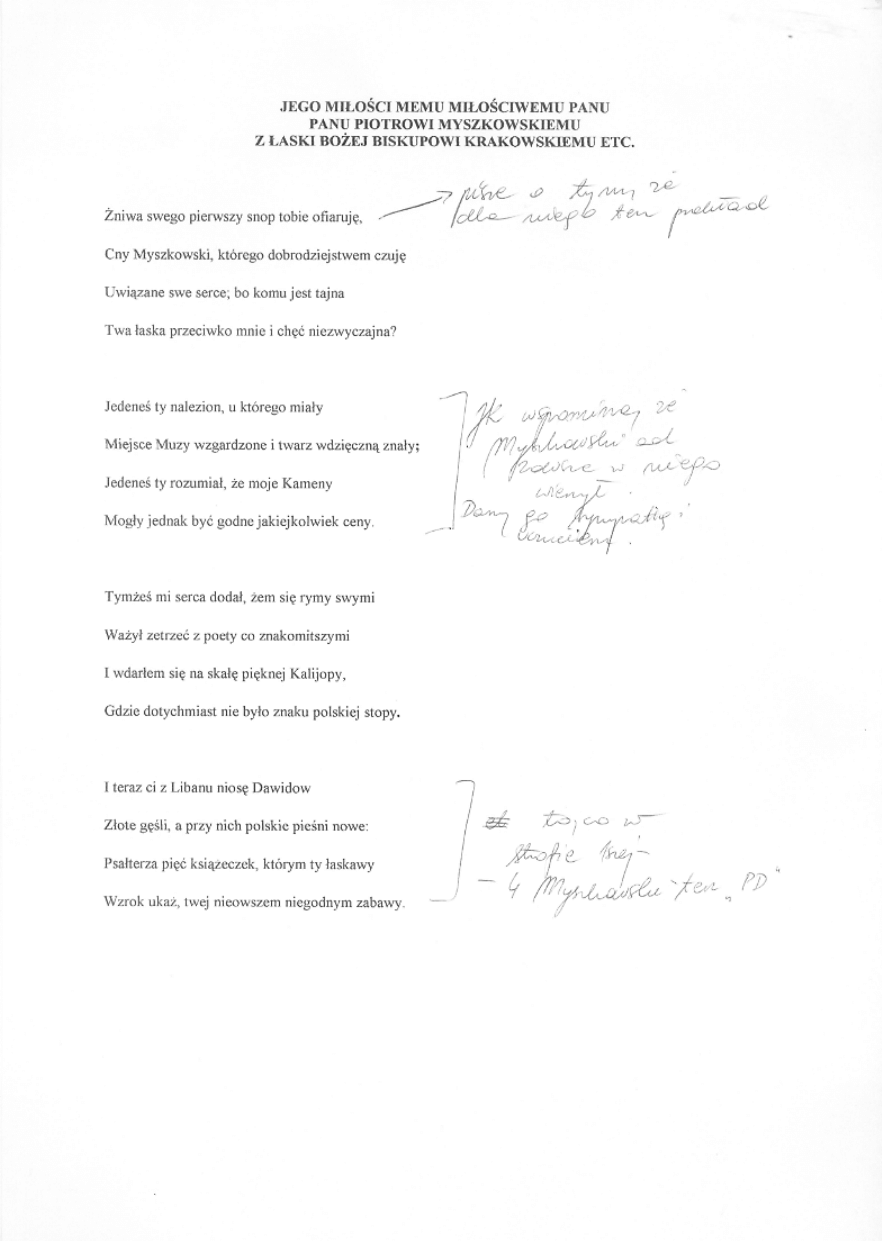 JEGO MIŁOŚCI MEMU MIŁOŚCIWEMU PANU
PANU PIOTROWI MYSZKOWSKIEMU
Z ŁASKI BOŻEJ BISKUPOWI KRAKOWSKIEMU ETC.
pisze o tym, że
dla niego ten przekład
Żniwa swego pierwszy snop tobie ofiaruję,
Cny Myszkowski, którego dobrodziejstwem czuję
Uwiązane swe serce; bo komu jest tajna
Twa łaska przeciwko mnie i chęć niezwyczajna?
Jedeneś ty nalezion, u którego miały
Miejsce Muzy wzgardzone i twarz wdzięczną znały;
Jedeneś ty rozumiał, że moje Kameny
Mogły jednak być godne jakiejkolwiek ceny.
JK wspomina, że
Myszkowski od
zawsze w niego
wierzył.
Darzy go sympatią i
Tymżeś mi serca dodał, żem się rymy swymi
Ważył zetrzeć z poety co znakomitszymi
I wdarłem się na skałę pięknej Kalijopy,
Gdzie dotychmiast nie było znaku polskiej stopy.
I teraz ci z Libanu niosę Dawidow
Złote gęśli, a przy nich polskie pieśni nowe:
Psałterza pięć książeczek, którym ty łaskawy
Wzrok ukaż, twej nieowszem niegodnym zabawy.
to, co w
strofie 1szej –
– 4 Myszkowski ten „PD"